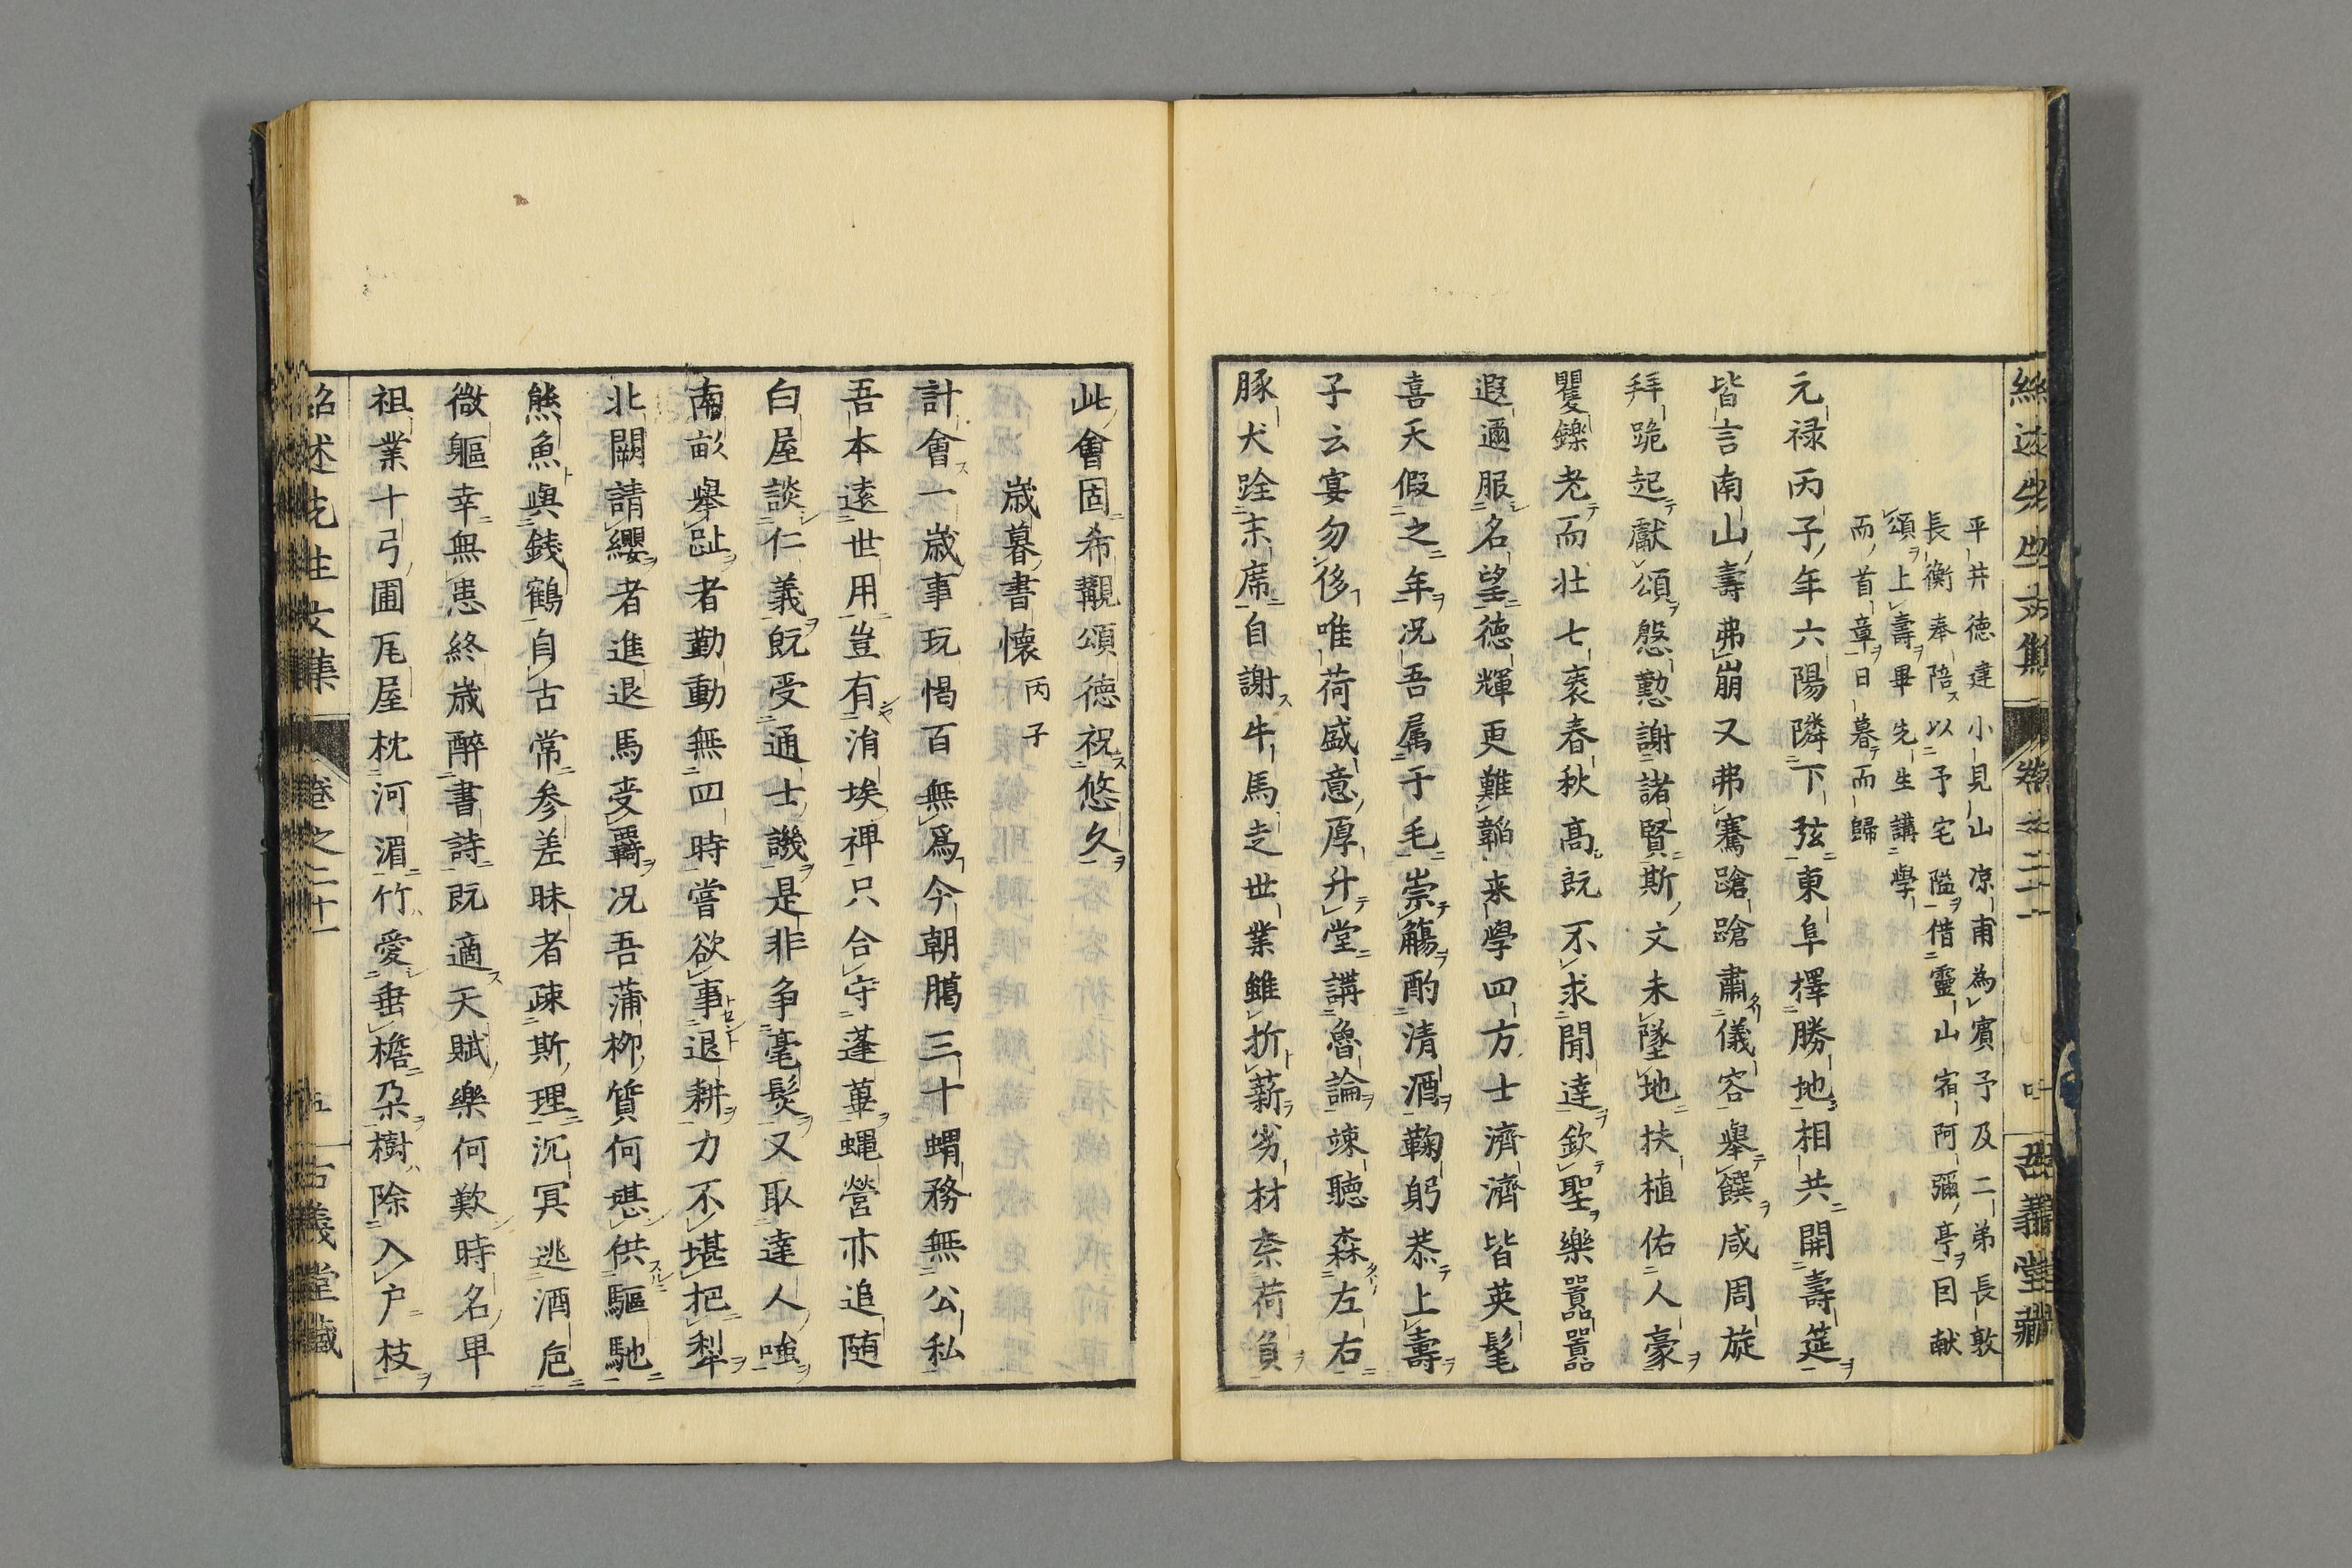 平井徳建小見山凉甫為賓予及二弟長敦
長衡奉陪以予宅隘借靈山宿阿彌亭因献
頌上壽畢先生講學
而首章日暮而歸
元禄丙子年六陽隣下弦東阜擇勝地相共開壽筵
皆言南山壽弗崩又弗騫蹌蹌肅儀容舉饌咸周旋
拜跪起獻頌慇懃謝諸賢斯文未墜地扶植佑人豪
矍鑠老而壯七袠春秋高既不求聞達欽聖樂囂囂
遐邇服名望徳輝更難韜来學四方士濟濟皆英髦
喜天假之年况吾属于毛崇觴酌清酒鞠躬恭上壽
子云宴勿侈唯荷盛意厚升堂講魯論竦聽森左右
豚犬跧末席自謝牛馬走世業雖折薪劣材柰荷負
此會固希觀頌徳祝悠久
歳暮書懷 丙子
計會一歳事玩愒百無爲今朝臈三十蝟務無公私
吾本遠世用豈有涓埃裨只合守蓬蓽蝿營亦追随
白屋談仁義既受通士譏是非争毫髮又取達人嗤
南畝舉趾者勤動無四時嘗欲事退耕力不堪把犁
北闕請纓者進退馬受覊况吾蒲柳質何堪供驅馳
熊魚與錢鶴自古常参差昧者疎斯理沉冥逃酒巵
微軀幸無恙終歳醉書詩既適天賦樂何歎時名卑
祖業十弓圃瓦屋枕河湄竹愛垂檐朶樹除入户枝
紹述先生文集
卷之二十一
五
古義堂藏